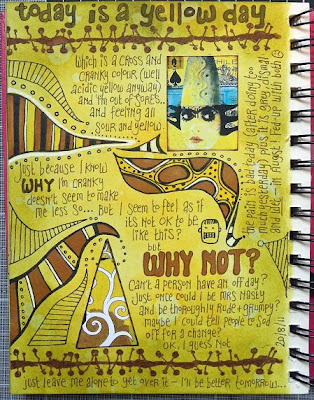 today is a yellow day,
which is a cross and
cranky colour (well
acidic yellow anyway)
and I'm out of sorts...
and feeling all
sour and yellow.
just because I know
WHY I'm cranky
doesn't seem to make
me less so... but I seem to feel as if
it's not OK to be
like this?
but
WHY NOT?
Can't a person have an off day?
just once could I be Mrs Nasty
and be thoroughly Rude + grumpy?
maybe I could tell people to sod
off for a change?
OK, I guess not
the pain is bad today (after doing too
much yesterday) plus it is grey, dismal
and wet - in August! Fed up with both
2018/11
just leave me alone to get over it - I'll be better tomorrow...